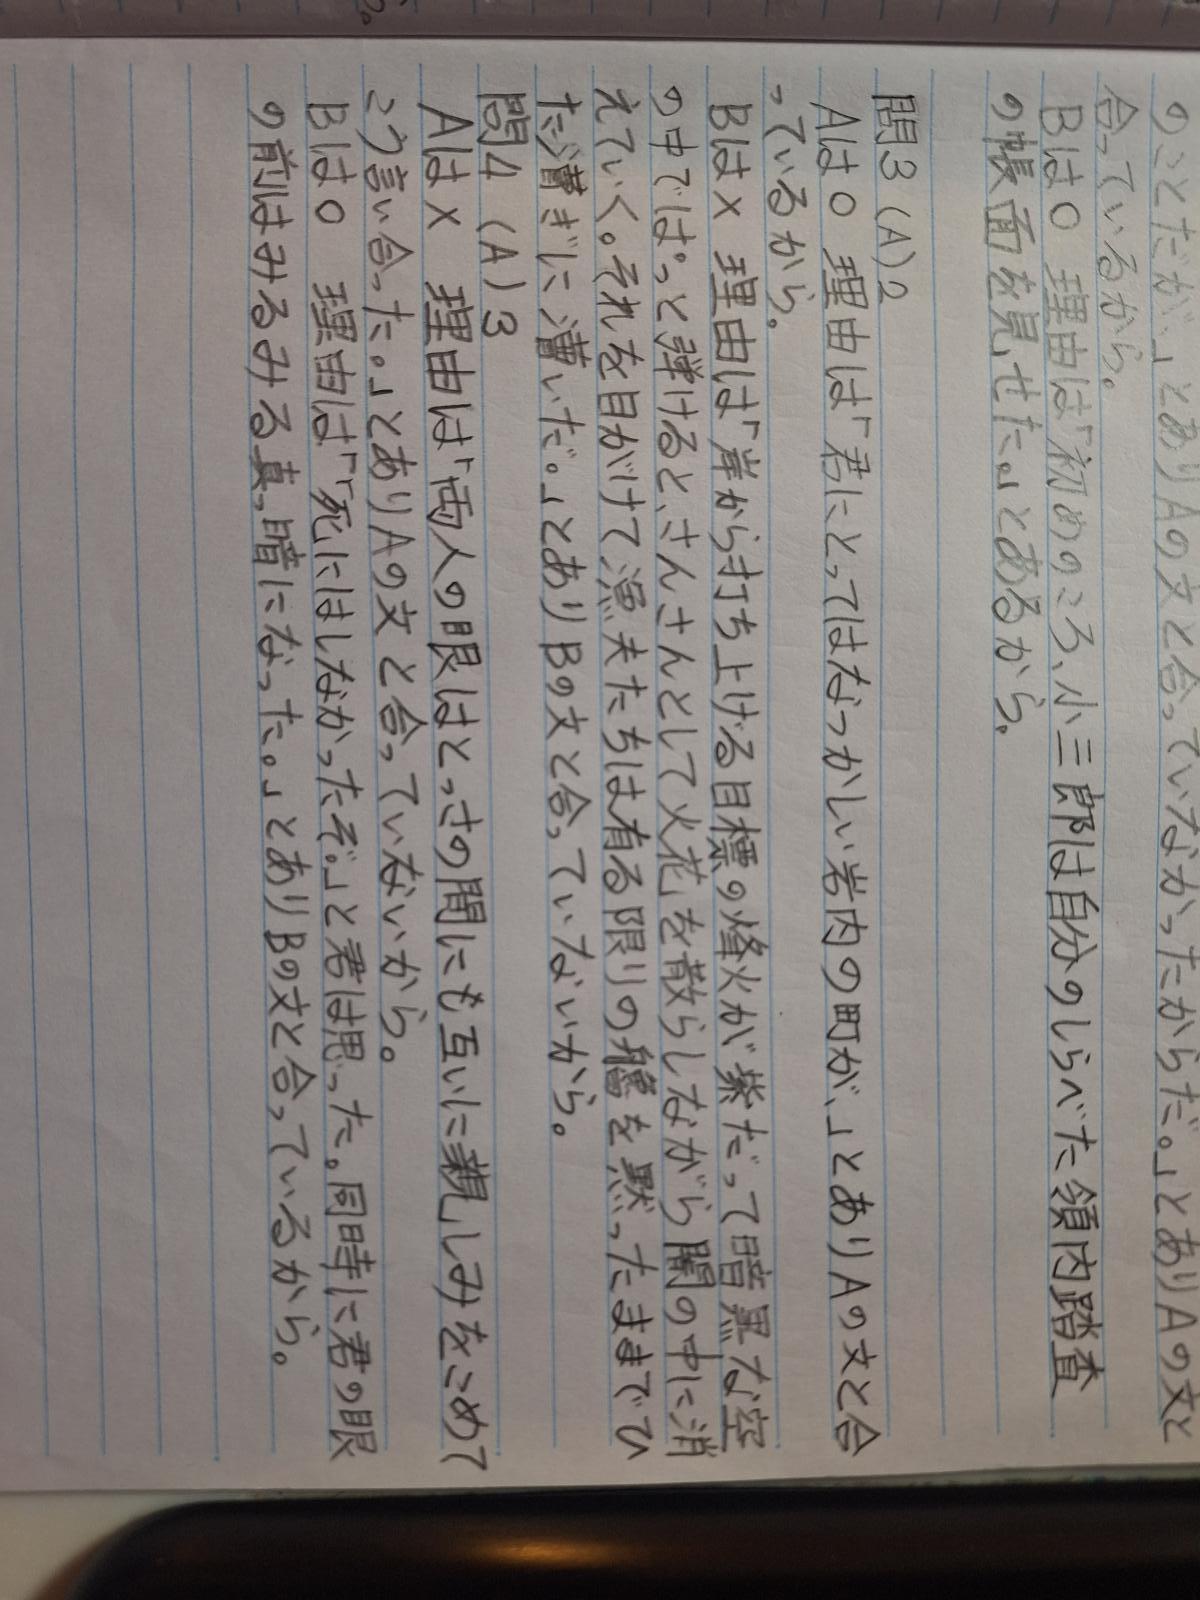 のことだが、」とありAの文と合っていなかったからだ。」とありAの文と
合っているから。
Bは○ 理由は「初めのころ、小三郎は自分のしらべた領内踏査
の帳面を見せた。」とあるから。
問3 (A)2
Aは○ 理由は「君にとってはなつかしい岩内の町が、」とありAの文と合
っているから。
Bは× 理由は「岸から打ち上げる目標の烽火が紫だって暗黒な空
の中でぱっと弾けると、さんさんとして火花を散らしながら闇の中に消
えていく。それを目がけて漁夫たちは有る限りの艪を黙ったままでひ
た漕ぎに漕いだ。」とありBの文と合っていないから。
問4 (A)3
Aは× 理由は「両人の眼はとっさの間にも互いに親しみをこめて
こう言い合った。」とありAの文と合っていないから。
Bは○ 理由は「「死にはしなかったぞ。」と君は思った。同時に君の眼
の前はみるみる真っ暗になった。」とありBの文と合っているから。